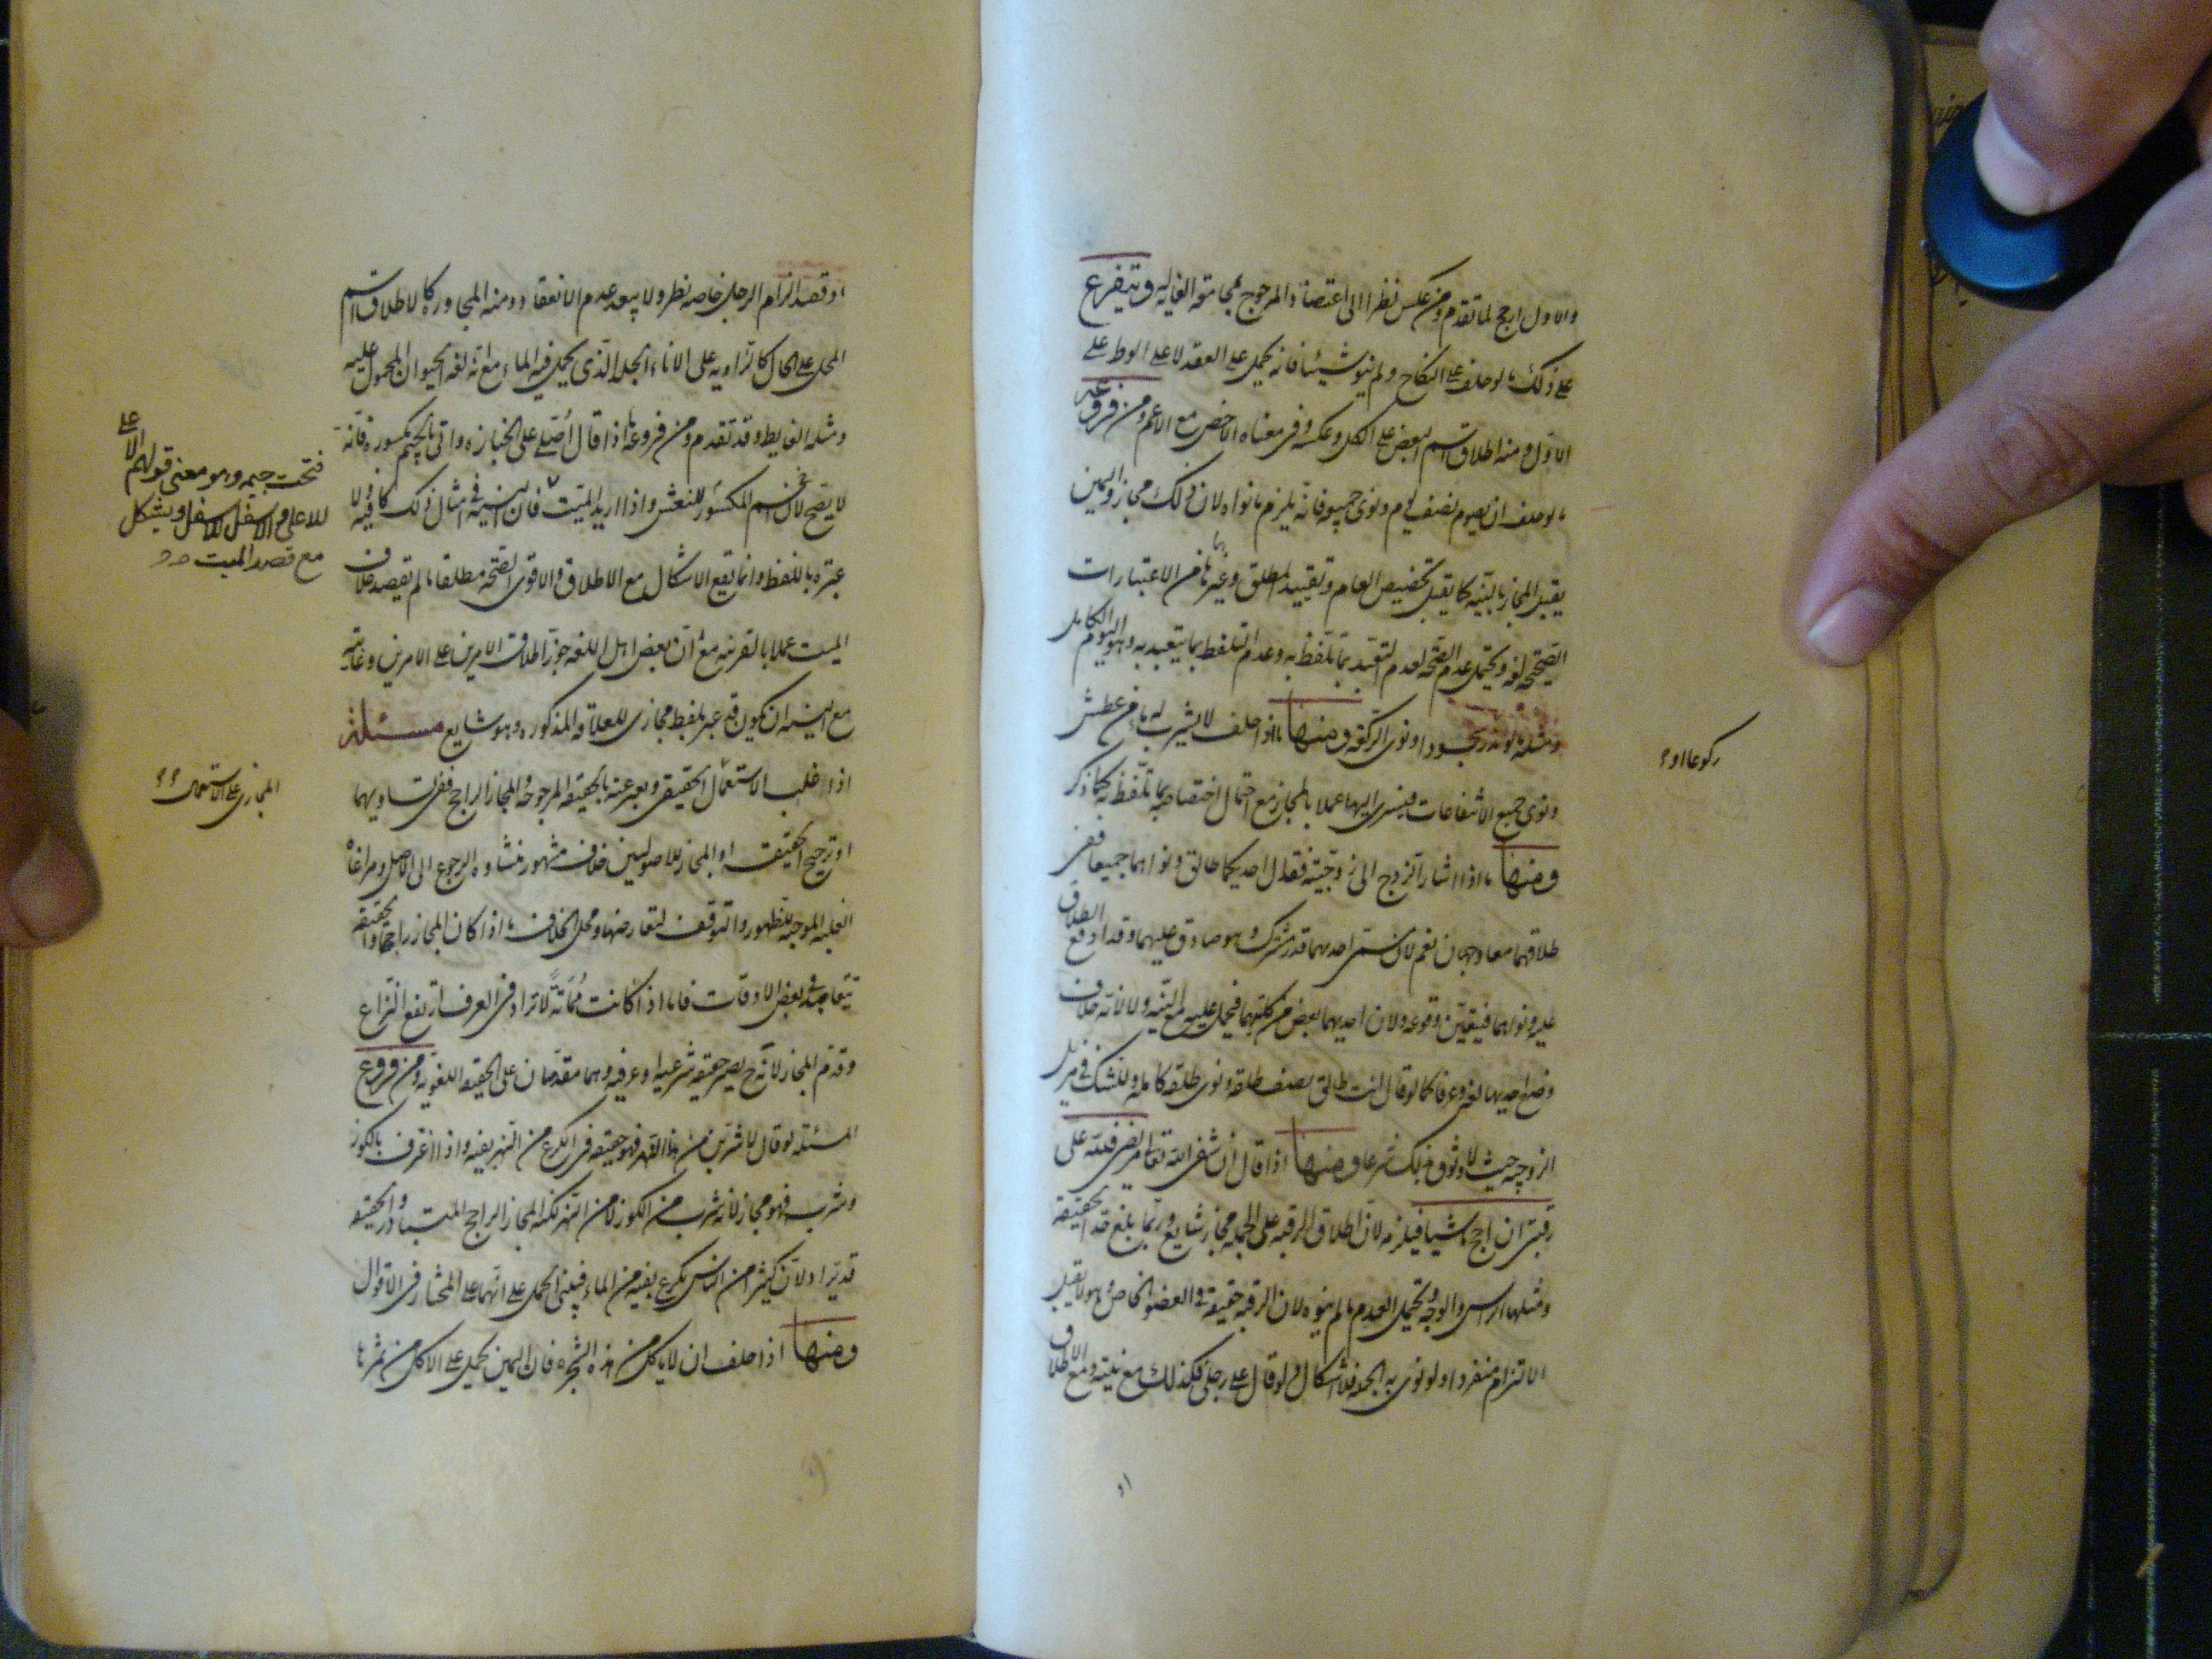 والاول ارجح لما تقدم ومن عكس نظرا الى اعتضاد المرجوح بمجامعة الغاية ويتفرع
على ذلك ما لو حلف على النكاح ولم ينو شيئا فانه يحمل على العقد لا على الوطء على
الاول ومنه اطلاق اسم البعض على الكل وعكسه وفى معناه الاخص مع الاعم ومن فروعه
ما لو حلف ان يصوم نصف يوم ونوى جميعه فانه يلزم ما نواه لان ذلك مجاز واليمين
يقبل المجاز بالنية كما يقبل تخصيص العام وتقييد المطلق وغيرهما من الاعتبارات
الصحيحة لغة ويحتمل عدم الصحة لعدم التعبد بما تلفظ به وعدم التلفظ بما يتعبد به وهو اليوم الكامل
ومثله ما لو نذر سجودا ونوى الركعة ومنها ما اذا حلف لا يشرب له ماء من عطش
ونوى جميع الانتفاعات فيسرى اليها عملا بالمجاز مع احتمال اختصاصه بما تلفظ به كما ذكر
ومنها ما اذا اشار الزوج الى زوجتيه فقال احديكما طالق ونواهما جميعا ففى
طلاقهما معا وجهان نعم لان مسمى احديهما قدر مشترك وهو صادق عليهما وقد اوقع الطلاق
عليه ونواهما فيتعين وقوعه ولان احديهما بعض من كلتيهما فيحمل عليه مع النية ولا لانه خلاف
وضع احديهما لغة وعرفا كما لو قال انت طالق نصف طلقة ونوى طلقة كاملة وللشك فى مزيل
الزوجية حيث لا وثوق بذلك شرعا ومنها اذا قال ان شفى الله تعالى مريضى فلله على
رقبتى ان احج ماشيا فيلزمه لان اطلاق الرقبة على الجملة مجاز شايع وربما بلغ حد الحقيقة
ومثلها الراس والوجه ويحتمل العدم ما لم ينوه لان الرقبة حقيقة فى العضو الخاص وهو لا يقبل
الالتزام منفردا ولو نوى به الجملة فلا اشكال ولو قال على رجلى فكذلك مع نيته ومع الاطلاق
ركوعا او
او قصد الزام الرجل خاصة نظر ولا يبعد عدم الانعقاد ومنه المجاورة كاطلاق اسم
المحل على الحال كالراوية على الاناء الجلد الذى يحمل فيه الماء مع انه لغة الحيوان المحمول عليه
ومثله الغايط وقد تقدم ومن فروعها اذا قال اصلى على الجنازة واتى بالجيم مكسورة فانه
لا يصح لان اسم المكسور للنعش واذا اريد الميت فان النية فى امثال ذلك كافية ولا
عبرة باللفظ وانما يقع الاشكال مع الاطلاق والاقوى الصحة مطلقا ما لم يقصد خلاف
الميت عملا بالقرينة مع ان بعض اهل اللغة جوز اطلاق الامرين على الامرين وغايته
مع النية ان يكون قد عبر بلفظ مجازى للعلاقة المذكورة وهو شايع مسئلة
اذا غلب الاستعمال الحقيقى ويعبر عنه بالحقيقة المرجوحة والمجاز الراجح ففى تساويهما
او ترجيح الحقيقة او المجاز للاصوليين خلاف مشهور منشاوه الرجوع الى الاصل ومراعاة
الغلبة الموجبة للظهور والتوقف لتعارضهما ومحل الخلاف ما اذا كان المجاز راجحا والحقيقة
تتعاهد فى بعض الاوقات فاما اذا كانت مماتة لا تراد فى العرف ارتفع النزاع
وقدم المجاز لانه ح يصير حقيقة شرعية او عرفية وهما مقدمان على الحقيقة اللغوية ومن فروع
المسئلة لو قال لاشربن من هذا النهر فهو حقيقة فى الكرع من النهر بفيه واذا اغترف بالكوز
وشرب فهو مجاز لانه شرب من الكوز لا من النهر لكنه المجاز الراجح المتبادر والحقيقة
قد تراد لان كثيرا من الناس يكرع بفيه من الماء فينبغى الحمل على ايهما على المختار فى الاقوال
ومنها اذا حلف ان لا ياكل من هذه الشجرة فان اليمين يحمل على الاكل من ثمرها
فتحت جيمه وهو معنى قولهم الاعلى
للاعلى والاسفل للاسفل ويشكل
مع قصد الميت
المجازى على الاستعمال